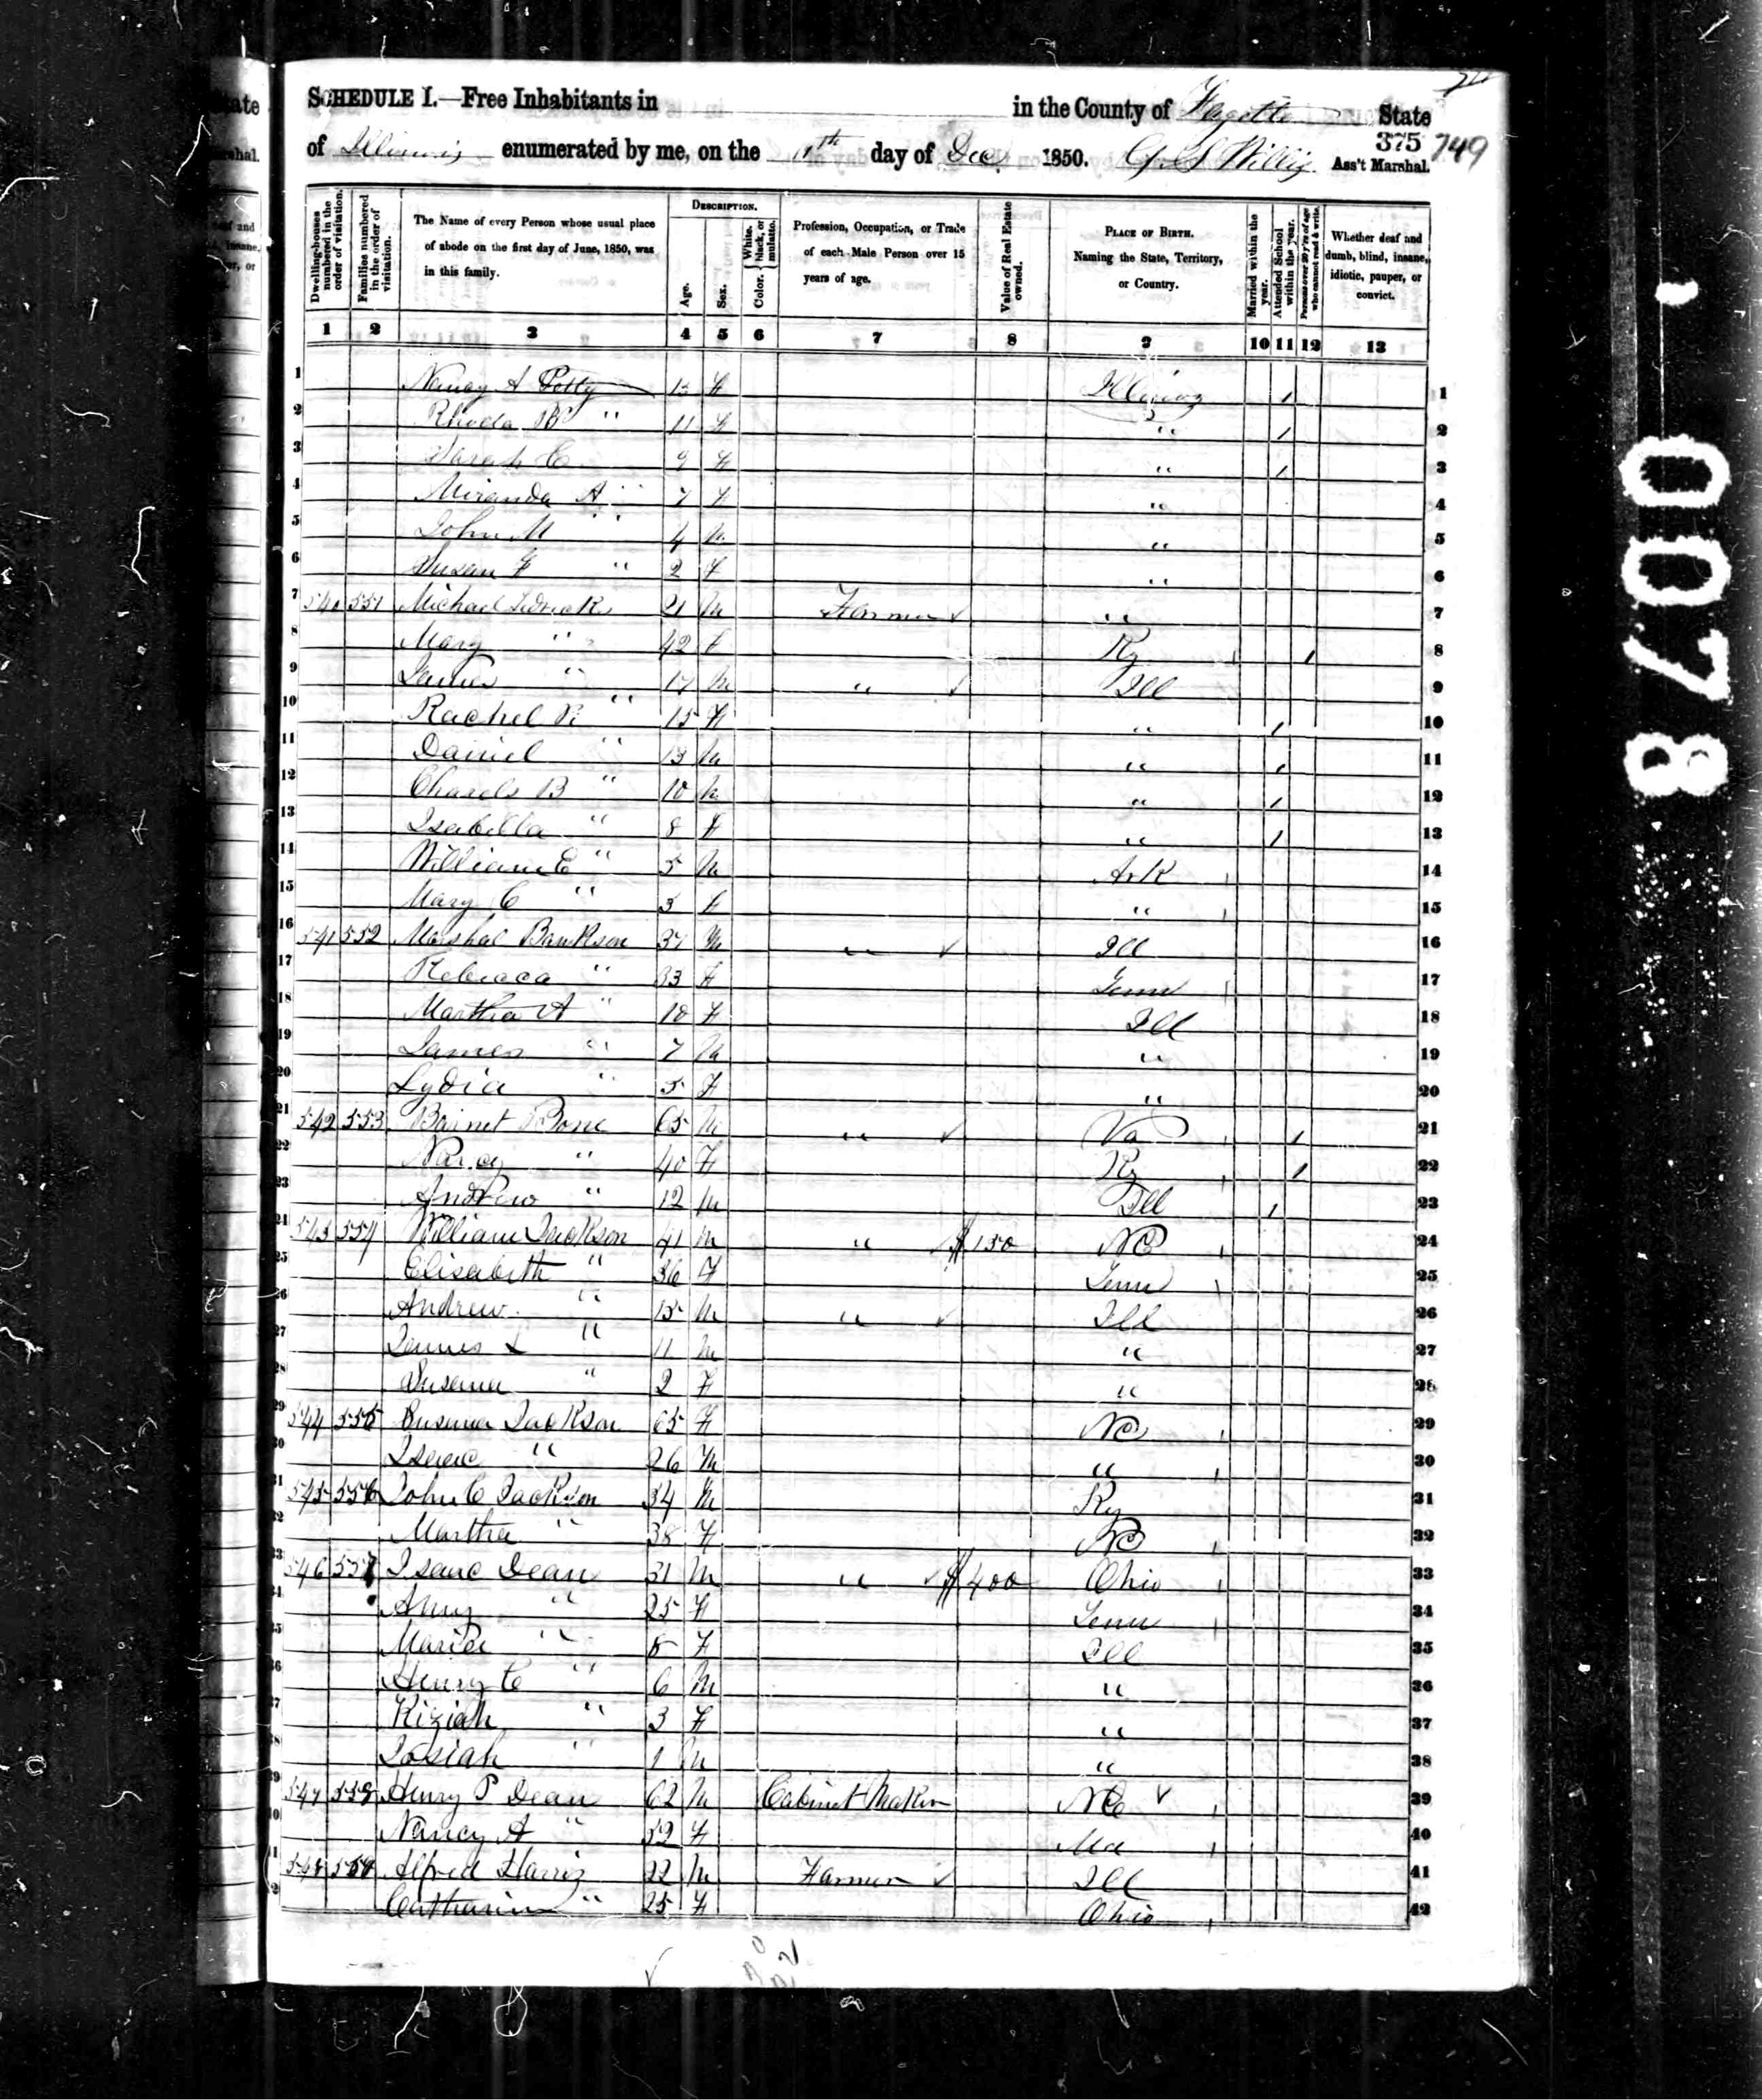 SCHEDULE I.—Free Inhabitants in in the County of Fayette State
of Illinois enumerated by me, on the 11th day of Dec 1850. Ass't Marshal.
375 749
Dwelling-houses numbered in the order of visitation.
Families numbered in the order of visitation.
The Name of every Person whose usual place of abode on the first day of June, 1850, was in this family.
DESCRIPTION.
Age.
Sex.
Color. White, black, or mulatto.
Profession, Occupation, or Trade of each Male Person over 15 years of age.
Value of Real Estate owned.
PLACE OF BIRTH. Naming the State, Territory, or Country.
Married within the year.
Attended School within the year.
Persons over 20 y'rs of age who cannot read & write.
Whether deaf and dumb, blind, insane, idiotic, pauper, or convict.
1 2 3 4 5 6 7 8 9 10 11 12 13
1 Nancy A F Illinois / 1
2 Rhoda B " 11 F " / 2
3 Sarah C 9 F " / 3
4 Miranda A " 7 F " 4
5 John M " 4 M " 5
6 Susan F " 2 F " 6
7 540 551 Michael 21 M Farmer ✓ " 7
8 Mary " 42 F Ky / 8
9 James " 17 M " ✓ Ill 9
10 Rachel R " 15 F " / 10
11 Daniel " 13 M " / 11
12 Charels B " 10 M " / 12
13 Isabella " 8 F " / 13
14 William E " 5 M Ark 14
15 Mary C " 3 F " 15
16 541 552 Marshal Bankson 37 M " ✓ Ill 16
17 Rebecca " 33 F Tenn 17
18 Martha A " 10 F Ill 18
19 James " 7 M " 19
20 Lydia " 5 F " 20
21 542 553 Bone 65 M " ✓ Va / 21
22 Nancy " 40 F Ky / 22
23 Andrew " 12 M Ill / 23
24 543 554 William Jackson 41 M " ✓ $150 NC 24
25 Elisabeth " 36 F Tenn 25
26 Andrew " 15 M " ✓ Ill 26
27 James L " 11 M " 27
28 Susana " 2 F " 28
29 544 555 Susana Jackson 65 F NC 29
30 Isaac " 26 M " 30
31 545 556 John C Jackson 34 M Ky 31
32 Martha " 38 F NC 32
33 546 557 Isaac Dean 31 M " ✓ $400 Ohio 33
34 Amy " 25 F Tenn 34
35 Maria " 8 F Ill 35
36 Henry C " 6 M " 36
37 Kiziah " 3 F " 37
38 Josiah " 1 M " 38
39 547 558 Henry P Dean 62 M Cabinet Maker NC ✓ 39
40 Nancy A " 52 F Md 40
41 548 559 Alfred Harris 22 M Farmer ✓ Ill 41
42 Catharine " 25 F Ohio 42
0078